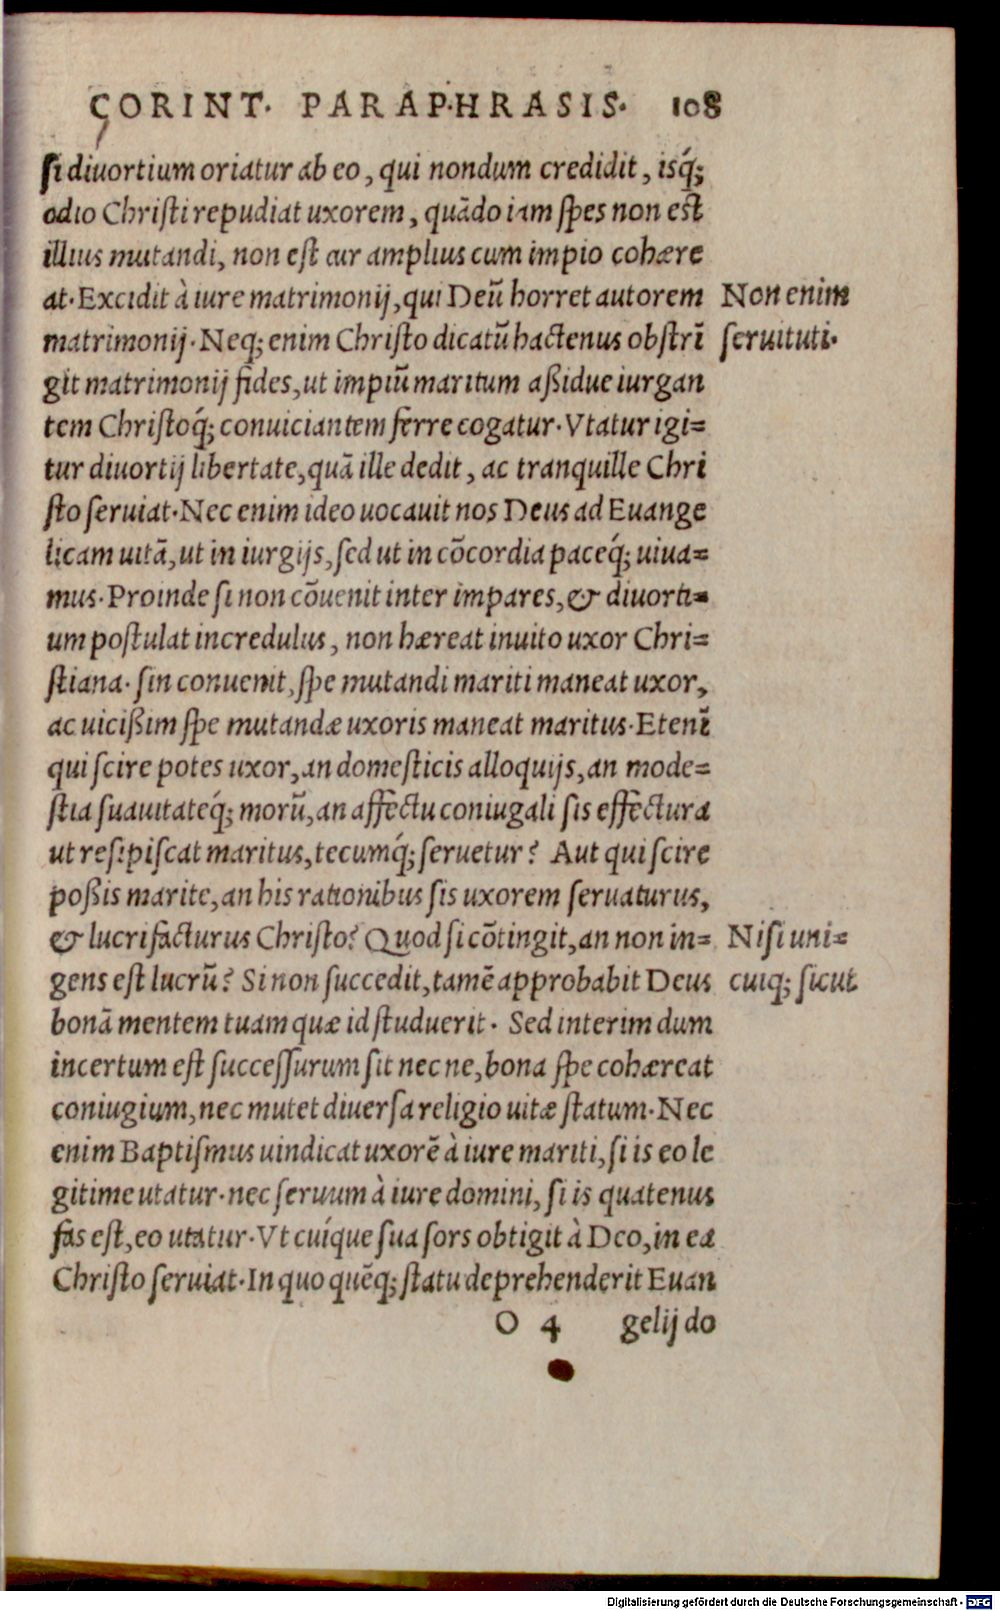 CORINT. PARAPHRASIS. 108
ſi diuortium oriatur ab eo, qui nondum credidit, isq́;
odio Chriſti repudiat uxorem, quãdo iam ſpes non eſt
illius mutandi, non eſt cur amplius cum impio cohære
at. Excidit à iure matrimonij, qui Deũ horret autorem
Non enim
matrimonij. Neq; enim Chriſto dicatũ hactenus obſtrĩ
ſeruituti.
git matrimonij fides, ut impiũ maritum aßidue iurgan
tem Chriſtoq́; conuiciantem ferre cogatur. Vtatur igi=
tur diuortij libertate, quã ille dedit, ac tranquille Chri
ſto ſeruiat. Nec enim ideo uocauit nos Deus ad Euange
licam uitã, ut in iurgijs, ſed ut in cõcordia paceq́; uiua=
mus. Proinde ſi non cõuenit inter impares, & diuorti=
um poſtulat incredulus, non hæreat inuito uxor Chri=
ſtiana. ſin conuenit, ſpe mutandi mariti maneat uxor,
ac uicißim ſpe mutandæ uxoris maneat maritus. Etenĩ
qui ſcire potes uxor, an domeſticis alloquijs, an mode=
ſtia ſuauitateq́; morũ, an affectu coniugali ſis effectura
ut reſipiſcat maritus, tecumq́; ſeruetur? Aut qui ſcire
poßis marite, an his rationibus ſis uxorem ſeruaturus,
& lucrifacturus Chriſto? Quod ſi cõtingit, an non in=
Niſi uni=
gens eſt lucrũ? Si non ſuccedit, tamẽ approbabit Deus
cuiq; ſicut
bonã mentem tuam quæ id ſtuduerit. Sed interim dum
incertum eſt ſucceſſurum ſit nec ne, bona ſpe cohæreat
coniugium, nec mutet diuerſa religio uitæ ſtatum. Nec
enim Baptiſmus uindicat uxorẽ à iure mariti, ſi is eo le
gitime utatur. nec ſeruum à iure domini, ſi is quatenus
fas eſt, eo utatur. Vt cuíque ſua ſors obtigit à Deo, in ea
Chriſto ſeruiat. In quo quẽq; ſtatu deprehenderit Euan
O 4 gelij do
Digitalisierung gefördert durch die Deutsche Forschungsgemeinschaft - DFG